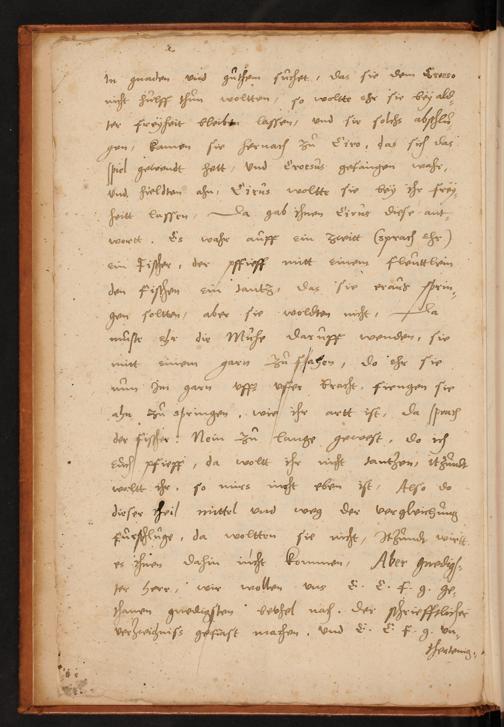 In gnaden und guthem suchet, das sie dem Croeso
nicht hülff thun woltten, so woltte ehr sie bey ald-
ter freyheit bleiben lassen, und sie solchs abschlu-
gen, kamen sie hernach zu Ciro, das sich das
spiel gewendt hett, und Croesus gefangen wahr,
und hieldten ahn, Cirus woltte sie bey ihr frey
heitt lassen, Da gab ihnen Cirus diese ant
wortt. Es wahr auff ein zeitt (sprach ehr)
ein Fischer, der pfieff mitt einem fleuttlein
den fischen ein tantz, das sie eraus sprin-
gen soltten, aber sie woldten nicht, Da
muste ehr die Mühe daruff wenden, sie
mitt einem garn zu fahen, do ehr sie
nun Im garn uffs ufer bracht, fiengen sie
ahn zu springen, wie ihr artt ist, Da sprach
der fischer: Nein zu lange gewest, do ich
euch pfieff, da woltt ihr nicht tantzen, itzundt
woltt ihr, so mirs nicht eben ist, Also do
dieser theil mittel und weg der vergleichung
fürschluge, da woltten sie nicht, Itzundt wirtt
es ihnen dahin nicht kommen, Aber gnedigs-
ter herr, wir wollen uns E. C. F. g. ge-
thanen gnedigsten bevhel nach, der schriefftlichen
verzeichniss gefast machen, und E. C. F. g. un-
thertenig-